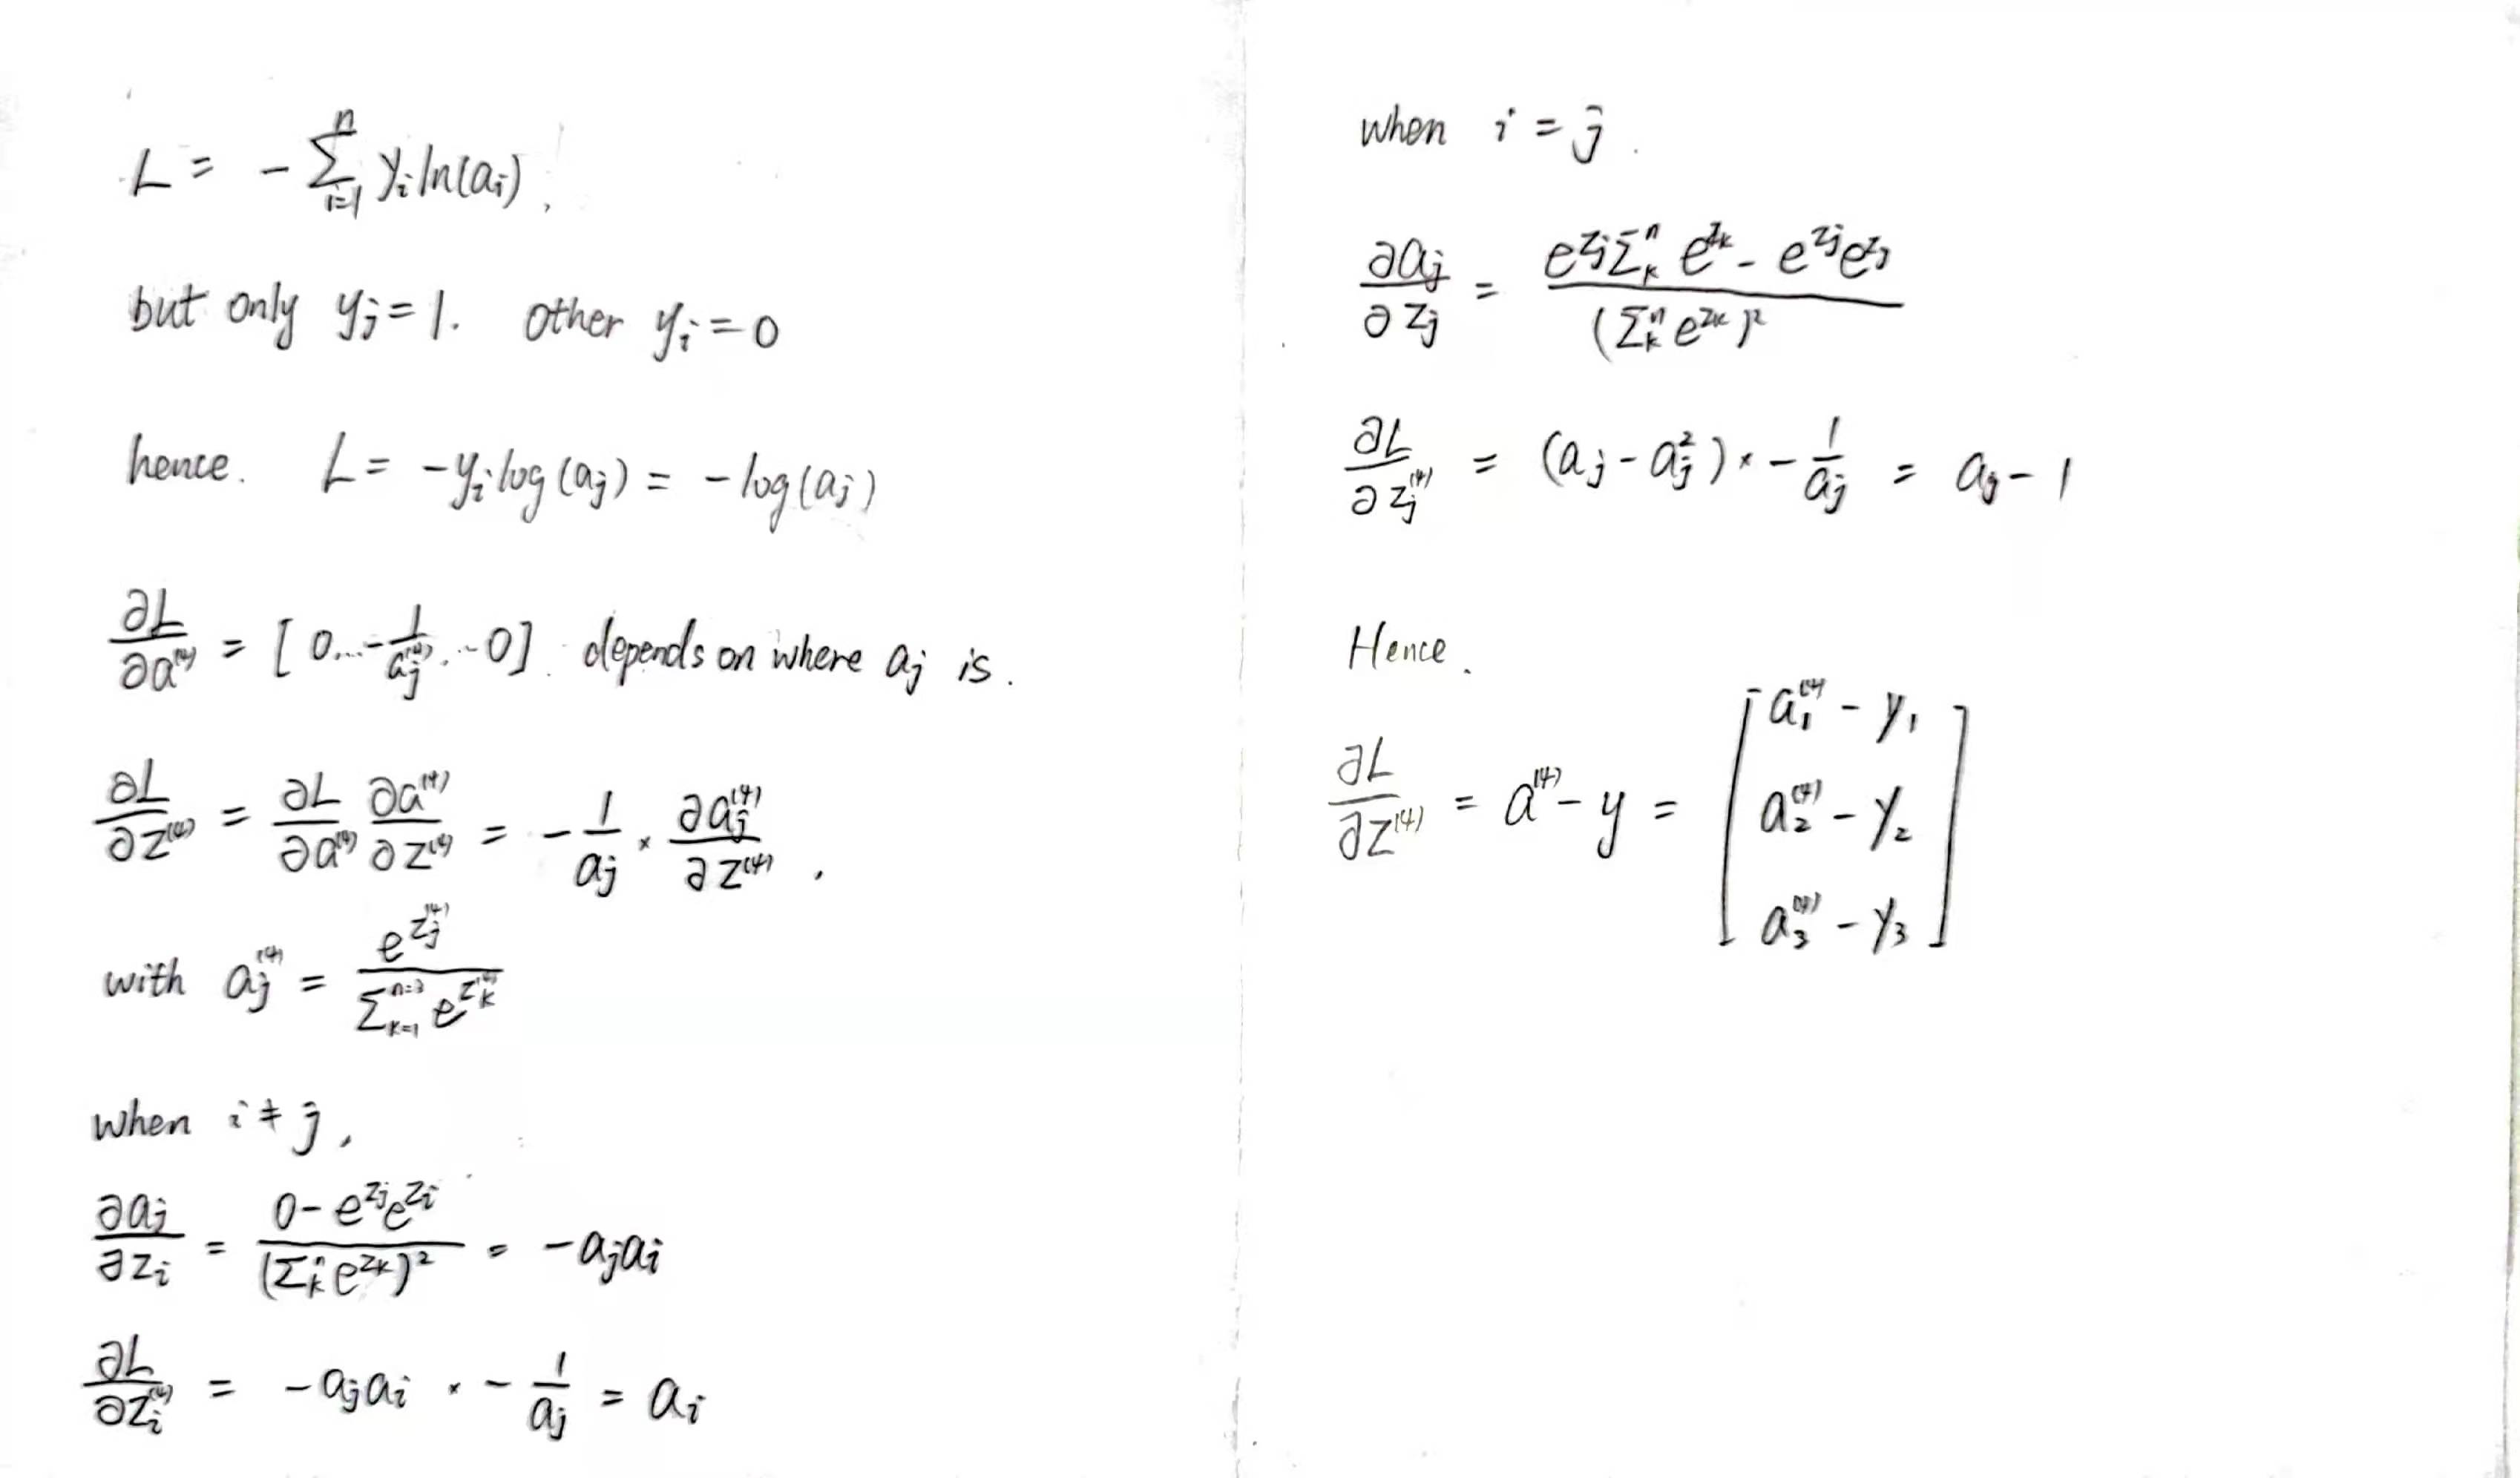 L = - ∑_{i=1}^{n} y_i ln(a_i),
but only y_j = 1. Other y_i = 0
hence. L = -y_i log(a_j) = -log(a_j)
∂L/∂a^{(4)} = [0...-1/a_j^{(4)}...0] depends on where a_j is.
∂L/∂z^{(4)} = ∂L/∂a^{(4)} ∂a^{(4)}/∂z^{(4)} = -1/a_j × ∂a_j^{(4)}/∂z^{(4)},
with a_j^{(4)} = e^{z_j^{(4)}} / ∑_{k=1}^{n=3} e^{z_k^{(4)}}
when i ≠ j,
∂a_j/∂z_i = (0 - e^{z_j} e^{z_i}) / (∑_k^n e^{z_k})^2 = -a_j a_i
∂L/∂z_i^{(4)} = -a_j a_i × -1/a_j = a_i
when i = j.
∂a_j/∂z_j = (e^{z_j} ∑_k^n e^{z_k} - e^{z_j} e^{z_j}) / (∑_k^n e^{z_k})^2
∂L/∂z_j^{(4)} = (a_j - a_j^2) × -1/a_j = a_j - 1
Hence.
∂L/∂z^{(4)} = a^{(4)} - y = [a_1^{(4)} - y_1
a_2^{(4)} - y_2
a_3^{(4)} - y_3]